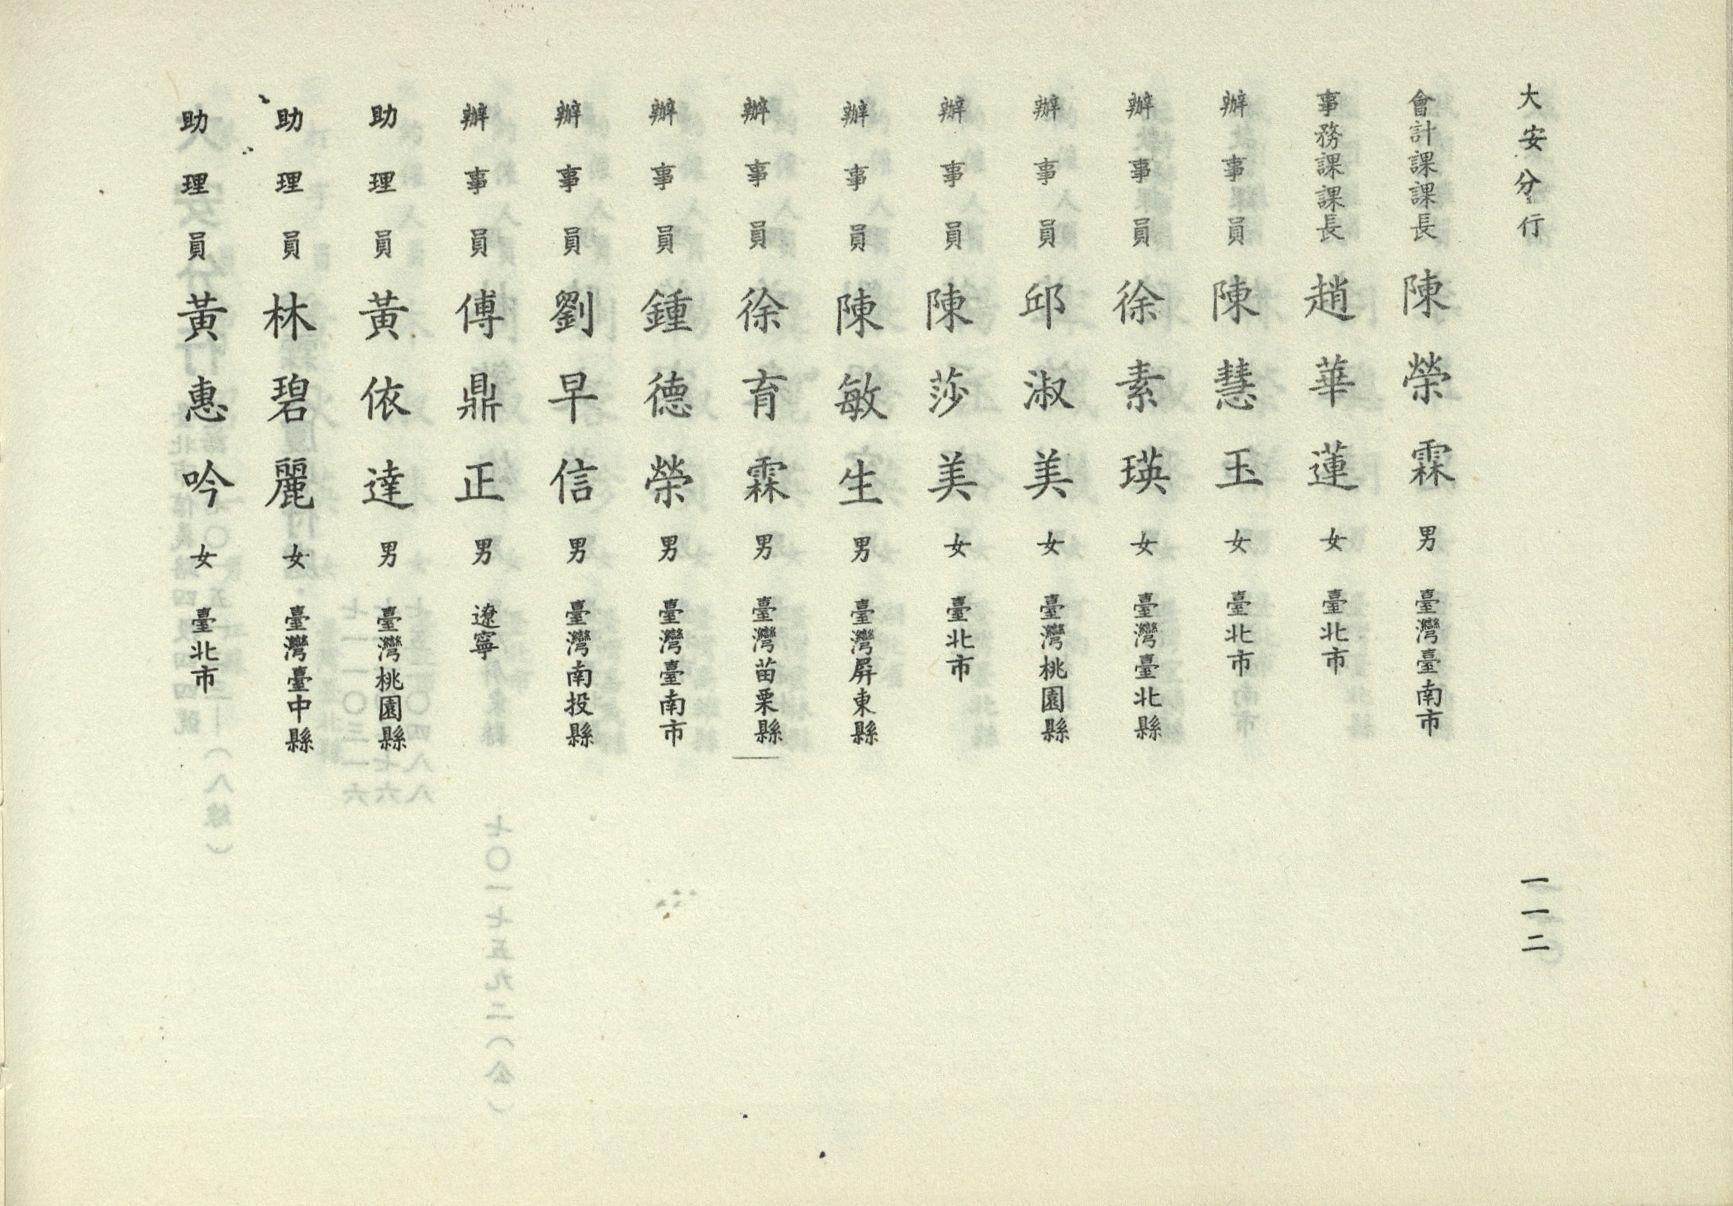 大安分行
一一二
會計課課長 陳榮霖 男 臺灣臺南市
事務課課長 趙華蓮 女 臺北市
辦事員 陳慧玉 女 臺北市
辦事員 徐素瑛 女 臺灣臺北縣
辦事員 邱淑美 女 臺灣桃園縣
辦事員 陳莎美 女 臺北市
辦事員 陳敏生 男 臺灣屏東縣
辦事員 徐育霖 男 臺灣苗栗縣
辦事員 鍾德榮 男 臺灣臺南市
辦事員 劉早信 男 臺灣南投縣
辦事員 傅鼎正 男 遼寧
助理員 黃依達 男 臺灣桃園縣
助理員 林碧麗 女 臺灣臺中縣
助理員 黃惠吟 女 臺北市